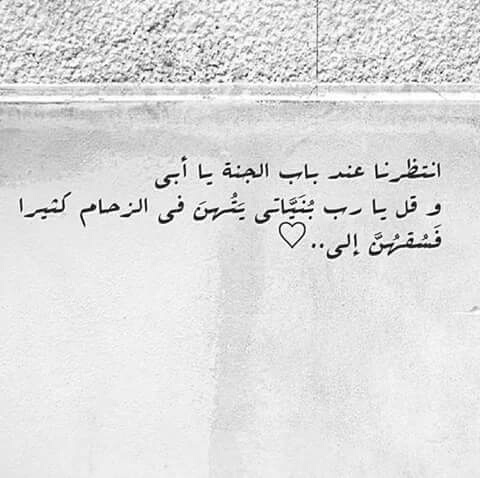 انتظرنا عند باب الجنة يا أبى
و قل يا رب بُنَيَّاتى يَتُهنَ فى الزحام كثيرا
فَسُقهُنَّ إلى..♡